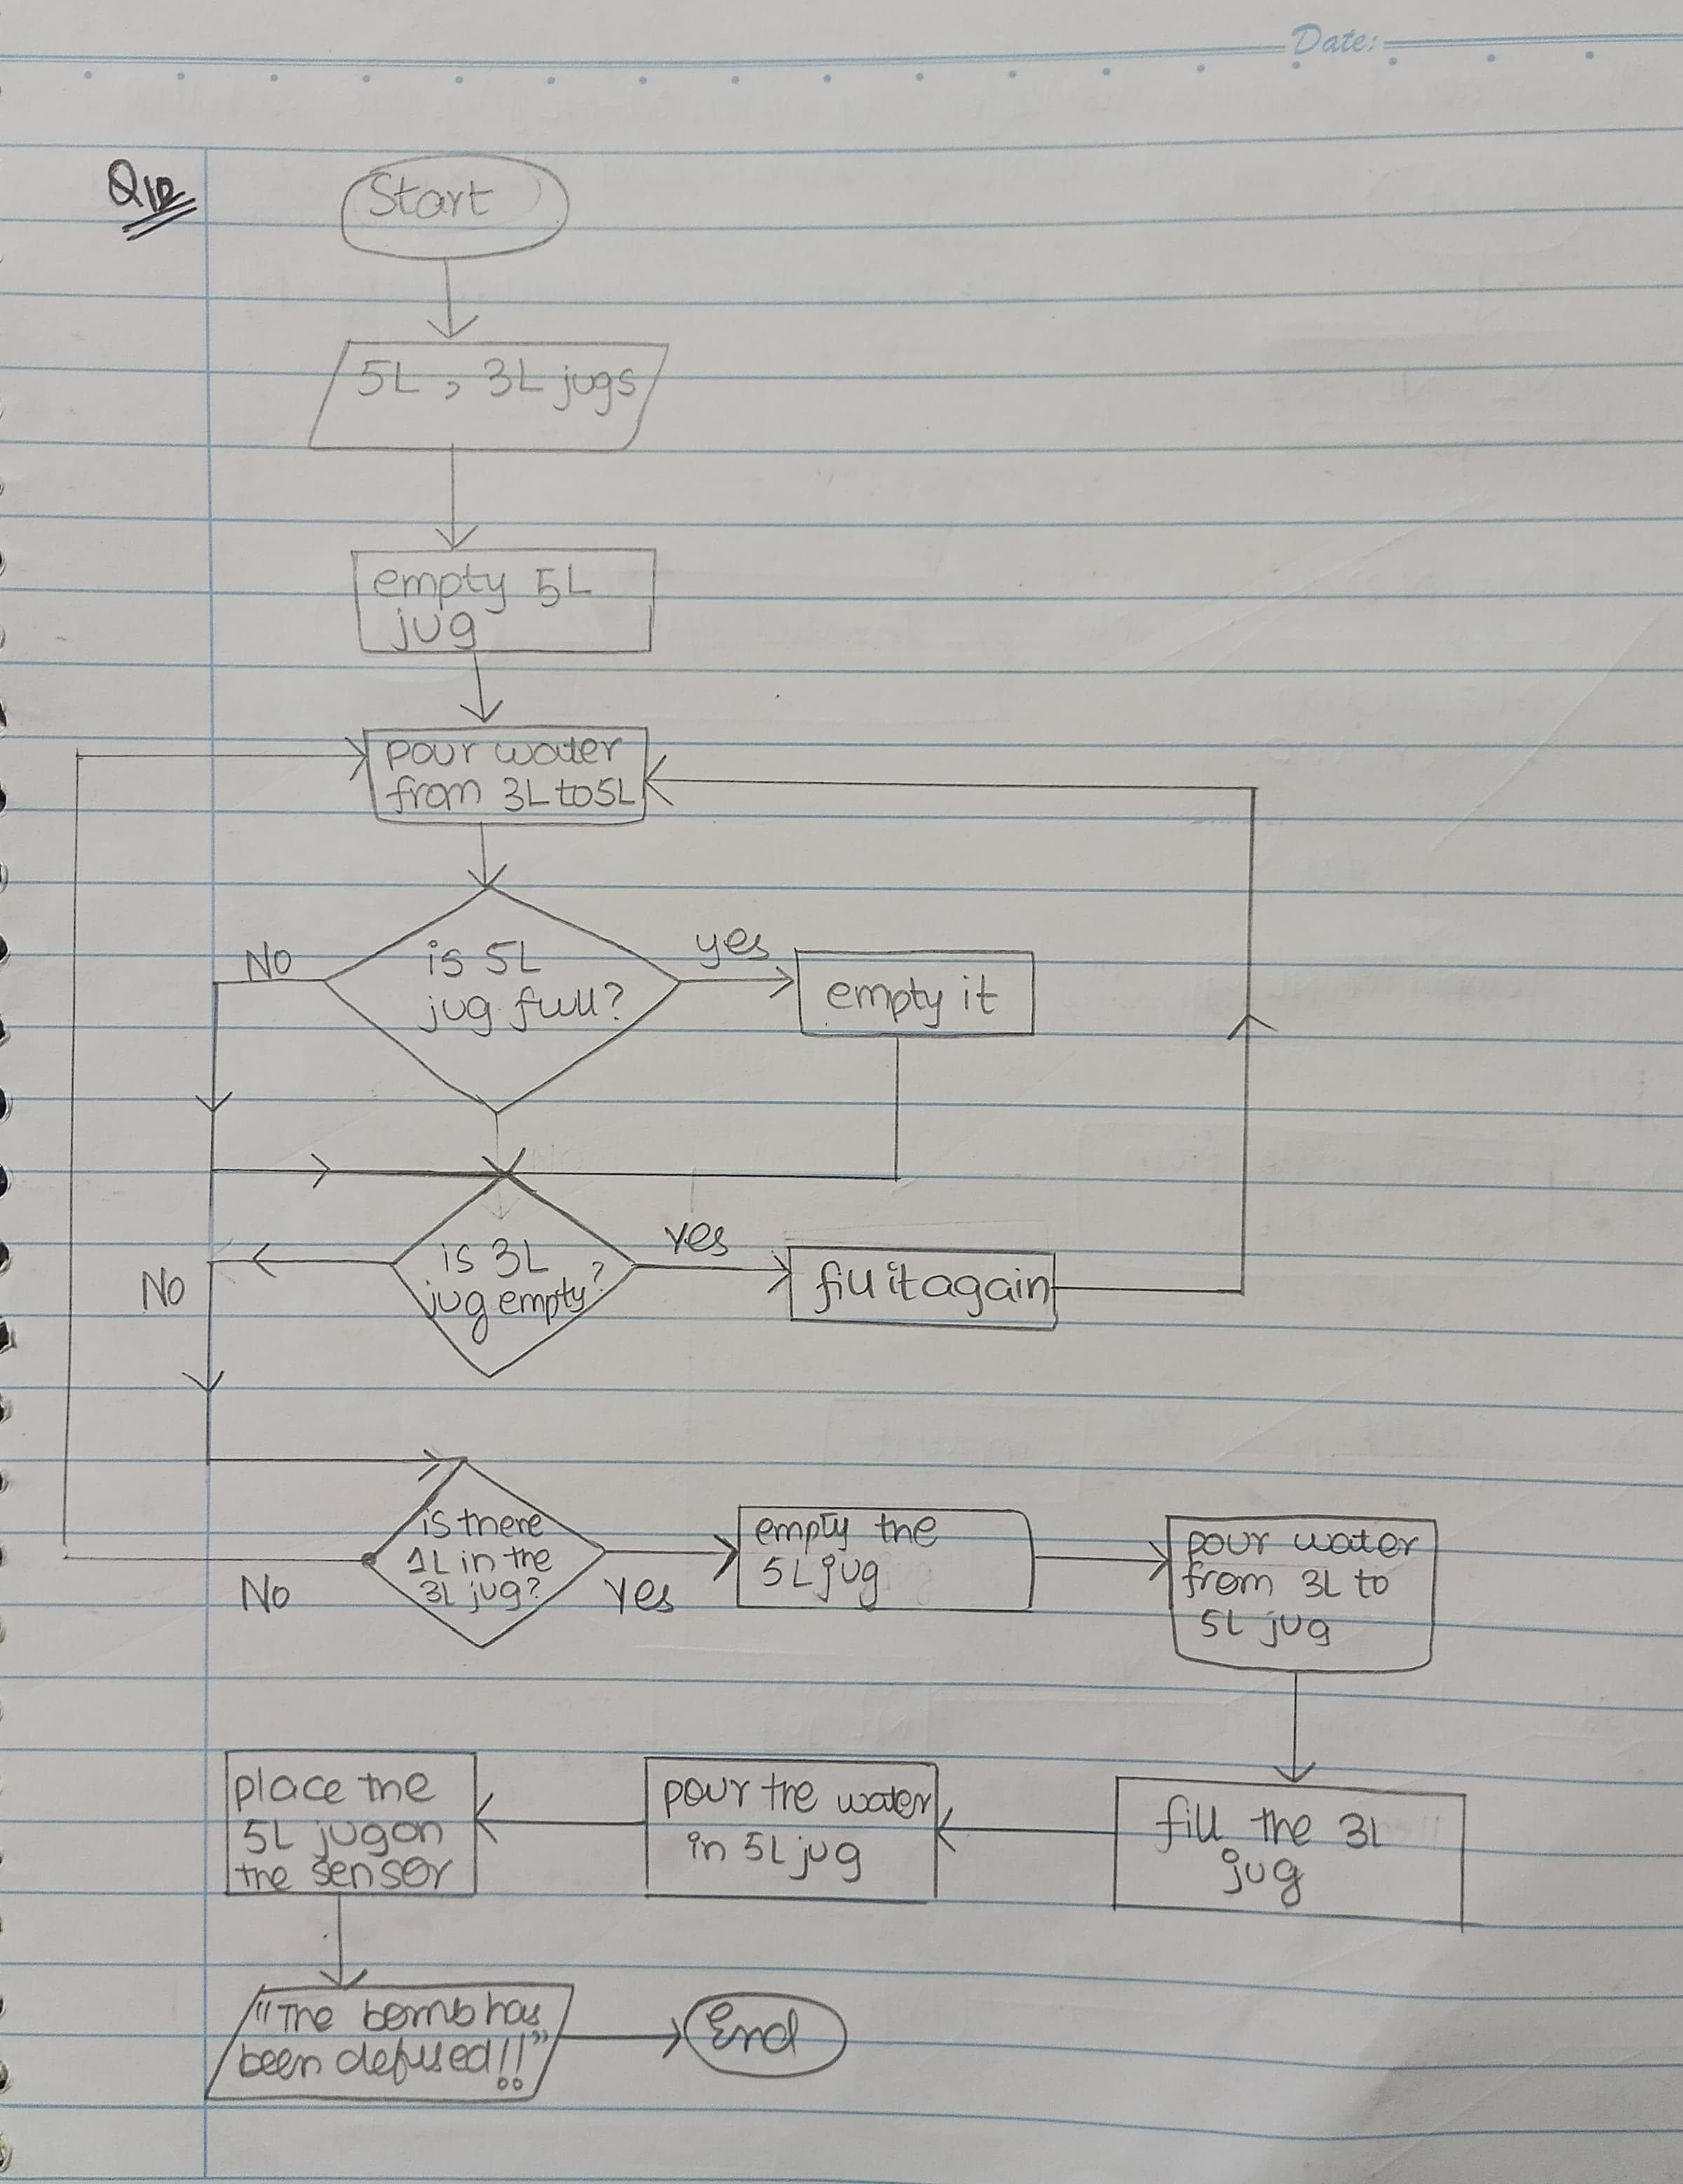 Date:
Start
5L, 3L jugs
empty 5L
jug
pour water
from 3L to 5L
No
is 5L
jug full?
yes
empty it
No
is 3L
jug empty?
yes
fill it again
No
is there
1L in the
3L jug?
yes
empty the
5L jug
pour water
from 3L to
5L jug
fill the 3L
jug
pour the water
in 5L jug
place the
5L jug on
the sensor
"The bomb has
been defused!!"
End